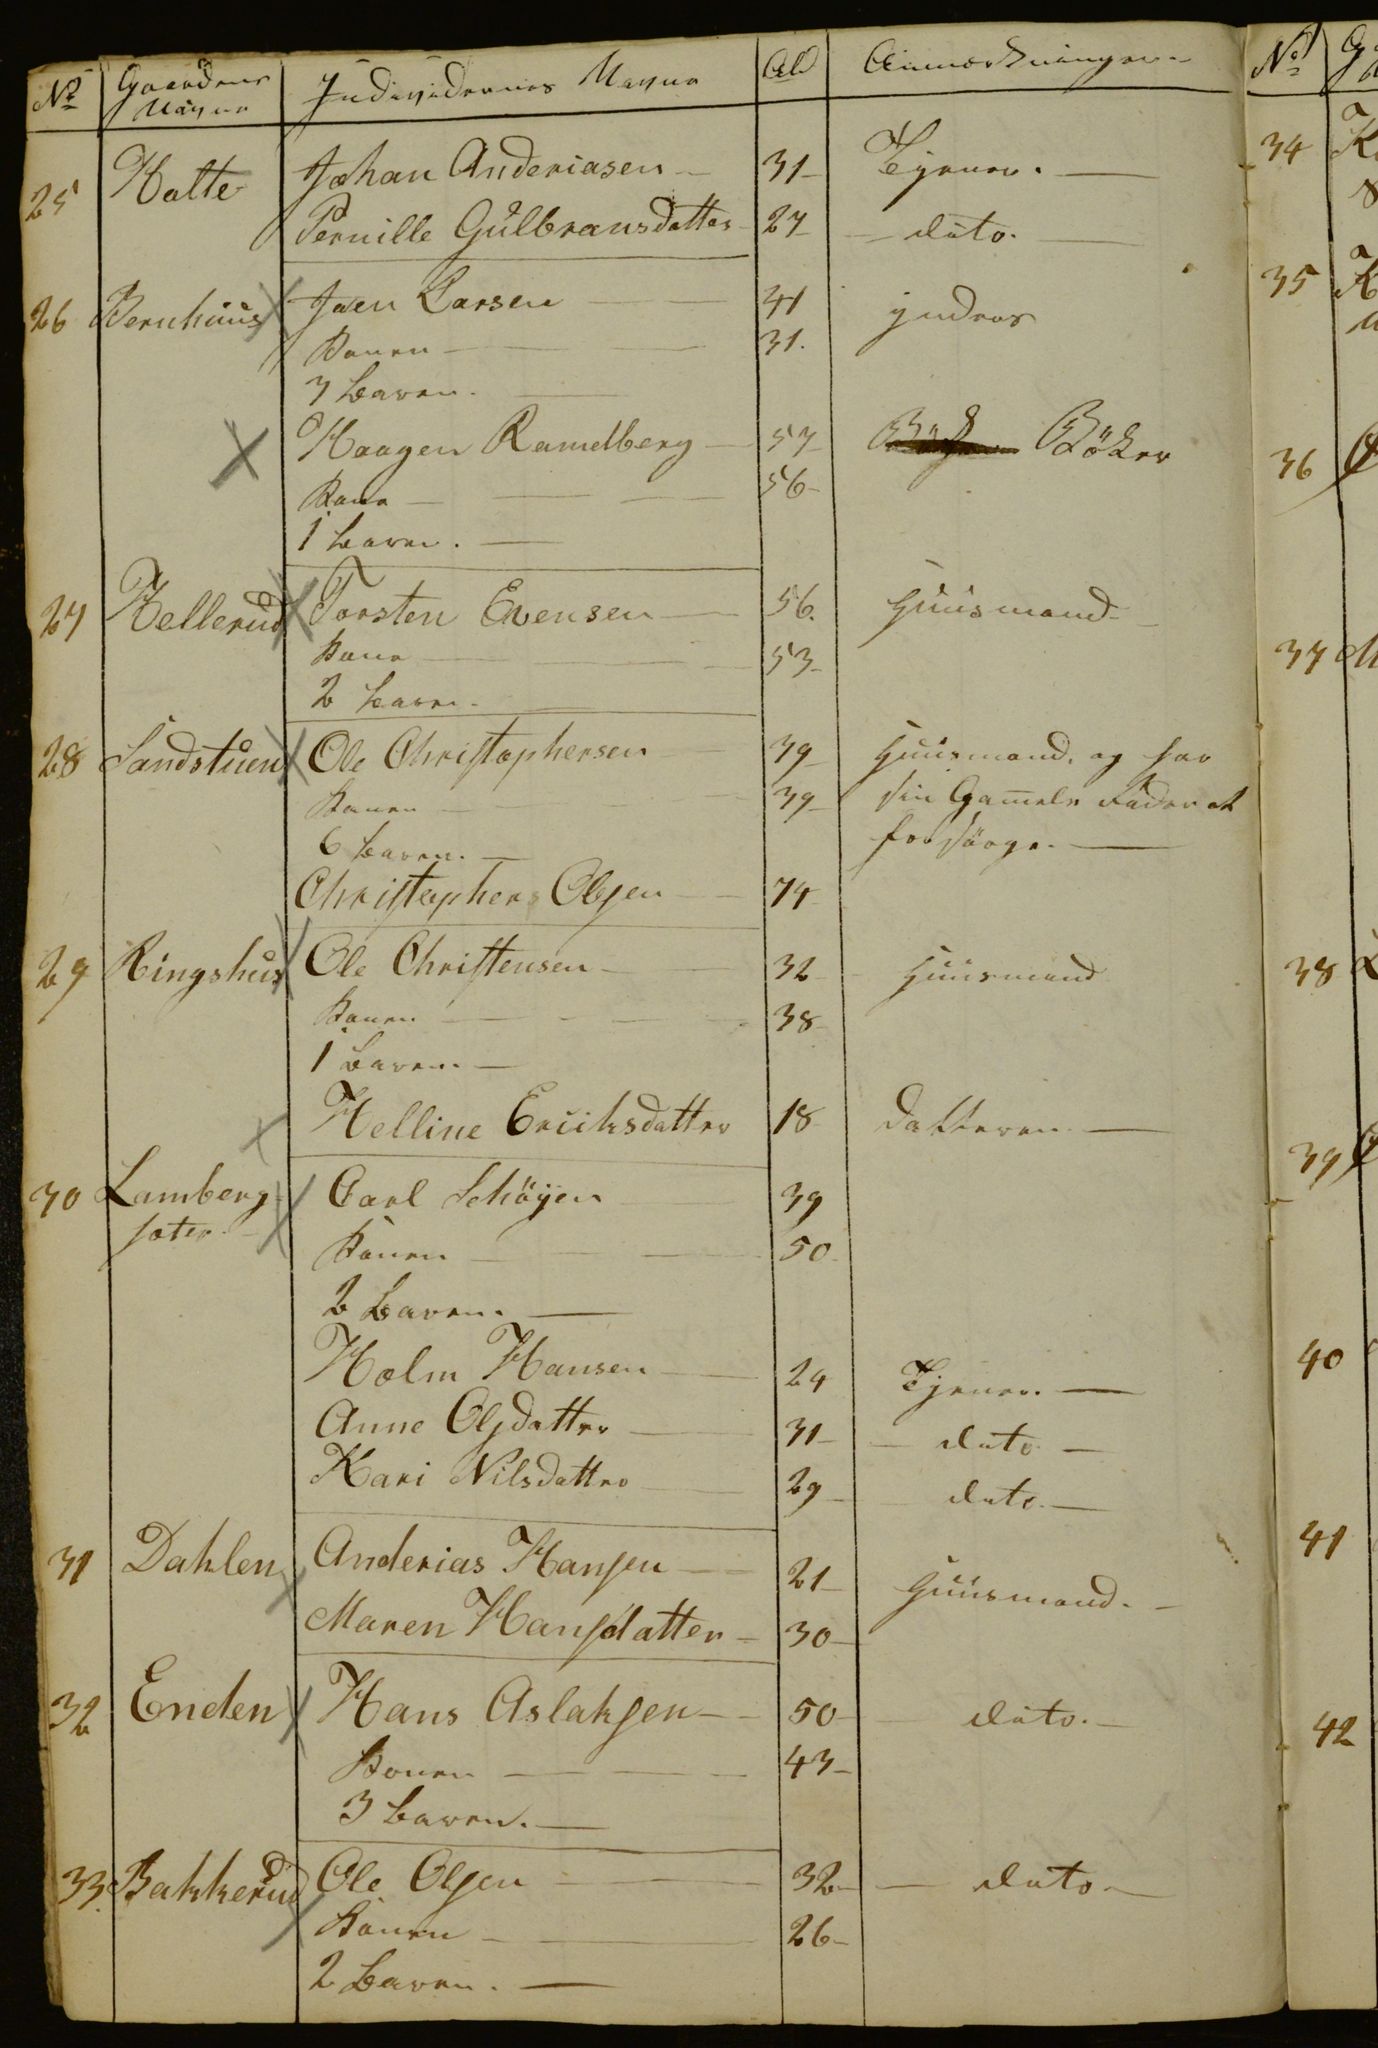 No Gaardens Navne Individernes Navne Ald Anmærkninger
25 Holte Johan Anderiasen 31 Tjener.
Pernille Gulbransdatter 27 dito.
26 Bernhuus Joen Larsen 41 Inderst
Konen 31.
3 Børn.
Haagen Ramelberg 57 Bøker
Kone 56
1 Børn.
27 Hellerud Torsten Evensen 56. Huusmand
Kone 53
2 Børn.
28 Sandstuen Ole Christophersen 39 Huusmand, og har
Konen 39 sin Gamele Fader at
6 Børn. forsørge.
Christophers Olsen 74
29 Ringshus Ole Christensen 32 Huusmand
Konen 38
1 Børn.
Helline Eriiksdatter 18 Datteren
30 Lamberg Carl Schöyen 39
sæter Konen 50
2 Børn.
Holm Hansen 24 Tjener.
Anne Olsdatter 31 dito
Kari Nilsdatter 29 dito.
31 Dahlen Anderias Hansen 21 Huusmand.
Maren Hansdatter 30
32 Enden Hans Aslaksen 50 dito.
Konen 43
3 Børn.
33. Bakkerud Ole Olsen 32 dito
Konen 26
2 Børn.
No
34
35
36
37
38
39
40
41
42